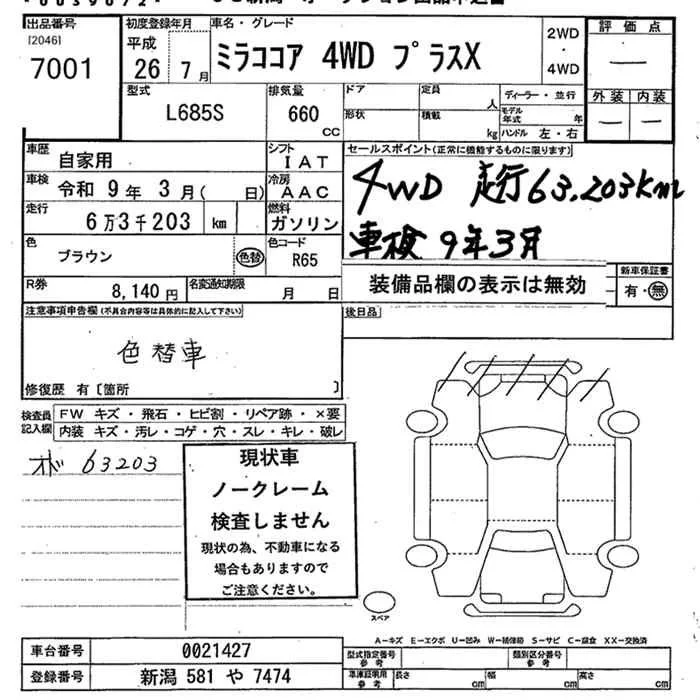 出品番号 初度登録年月 車名・グレード 2WD・4WD 評価点
[2046]
7001 平成 26年 7月 ミラココア 4WD プラスX —
型式 L685S 排気量 660 CC ドア 形状 定員 人 積載 kg ディーラー・並行 モデル年式 年 ハンドル 左・右 外装 — 内装 —
車歴 自家用 シフト IAT セールスポイント(正常に機能するものに限ります)
車検 令和 9年 3月( 日) 冷房 AAC 4WD 走行63,203km
走行 6万3千203 km 燃料 ガソリン 車検 9年3月
色 ブラウン 色替 色コード R65 装備品欄の表示は無効 新車保証書 有・無
R券 8,140円 名変通知期限 月 日
注意事項申告欄(不具合内容等は具体的に記入して下さい) 後日品
色替車
修復歴 有〔箇所 〕
検査員記入欄 FW キズ・飛石・ヒビ割・リペア跡・×要
内装 キズ・汚レ・コゲ・穴・スレ・キレ・破レ
オド 63203
現状車
ノークレーム
検査しません
現状の為、不動車になる
場合もありますので
ご注意ください。
スペア
A-キズ E-エクボ U-凹み W-補修跡 S-サビ C-腐食 XX-交換済
車台番号 0021427 型式指定番号 参考 類別区分番号 参考
登録番号 新潟 581 や 7474 車庫証明用 参考 長さ cm 幅 cm 高さ cm